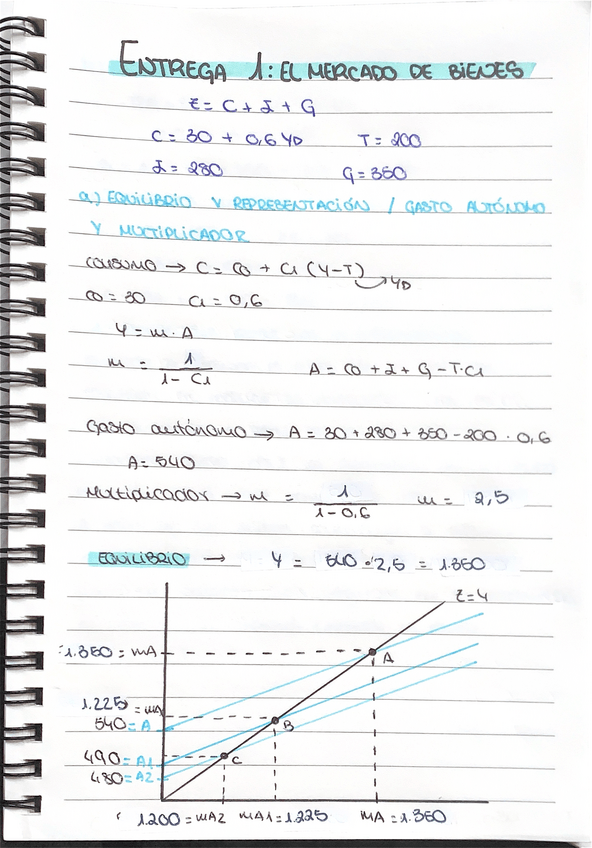 ENTREGA 1: EL MERCADO DE BIENES
Z = C + I + G
C = 30 + 0,6 YD T = 200
I = 280 G = 350
a) EQUILIBRIO Y REPRESENTACIÓN / GASTO AUTÓNOMO
Y MULTIPLICADOR
CONSUMO → C = C0 + C1 (Y-T)
YD
C0 = 30 C1 = 0,6
Y = m · A
m = 1 / 1 - C1 A = C0 + I + G - T·C1
Gasto autónomo → A = 30 + 280 + 350 - 200 · 0,6
A = 540
Multiplicador → m = 1 / 1 - 0,6 m = 2,5
EQUILIBRIO → Y = 540 · 2,5 = 1.350
Z = Y
1.350 = mA
A
1.225 = mA
540 = A
B
490 = A1
C
480 = A2
1.200 = mA2 mA1 = 1.225 mA = 1.350